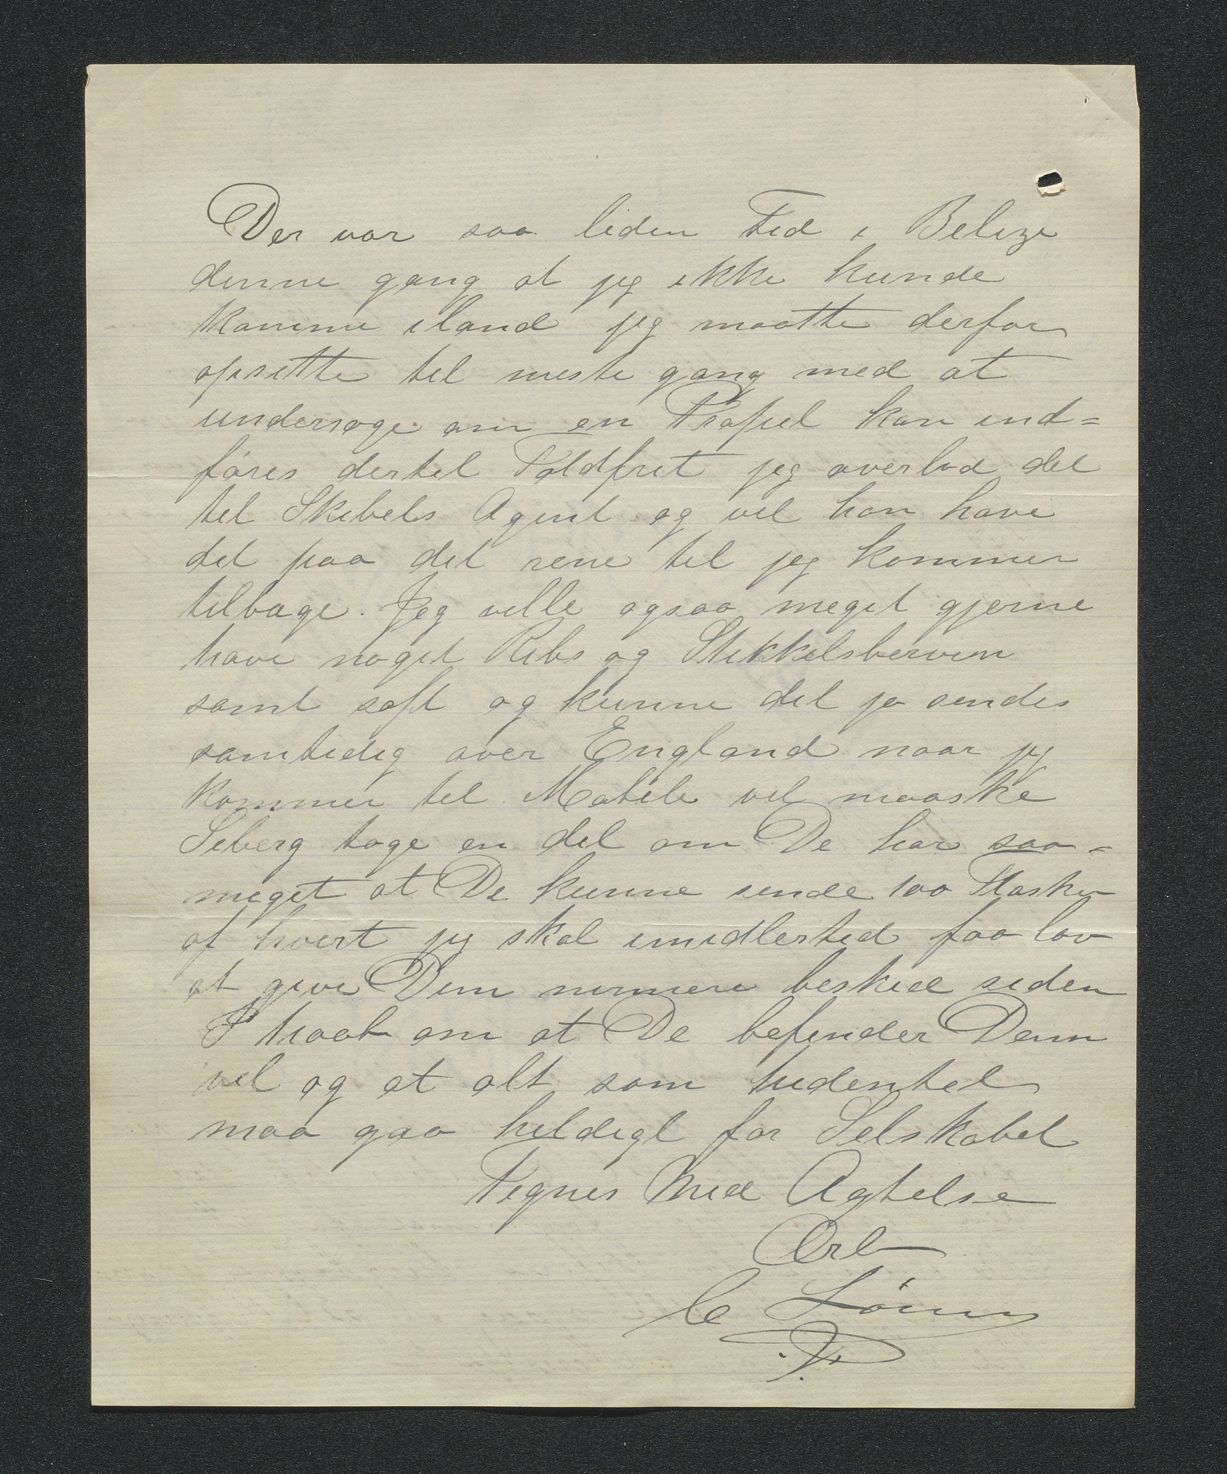 Der var saa liden Tid i Belize
denne gang at jeg ikke kunde
komme iland jeg maatte derfor
opsette til neste gang med at
undersøge om en Propel kan ind=
føres dertil Toldfrit jeg overlod det
til Skibets Agent og vil han have
det paa det rene til jeg kommer
tilbage. Jeg ville ogsaa meget gjerne
have noget Ribs og Stikkelsbervin
samt saft og kunne det jo sendes
samtidig over England naar jeg
kommer til Mobile vil maaske
Seberg tage en del om De har saa=
meget at De kunne sende 100 Flasker
af hvert jeg skal imidlertid faa lov
at give Dem nermere beskied siden
I haab om at De befinder Dem
vel og at alt som hidentil
maa gaa heldigt for Selskabet
Tegnes Med Agtelse
Ærb
C